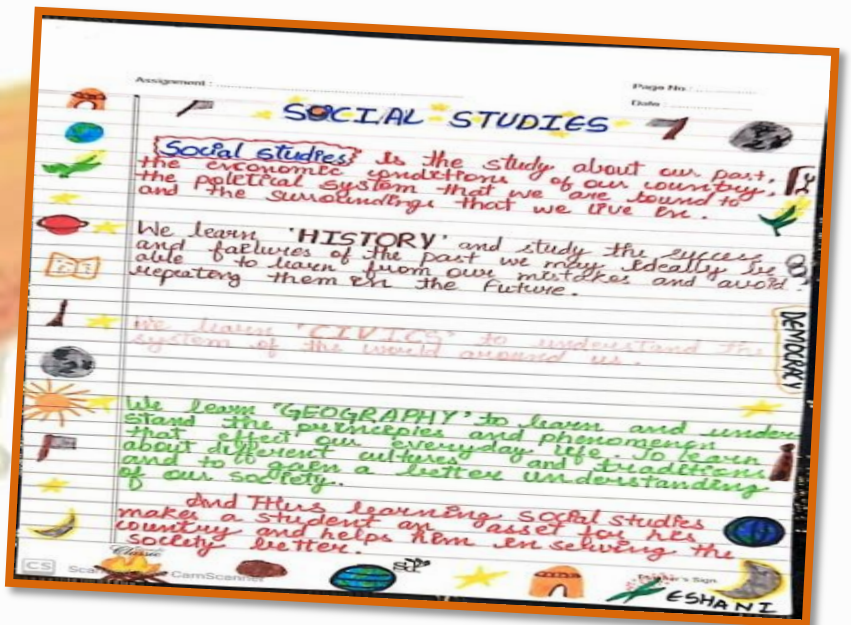 Assignment :
Page No. :
Date :
SOCIAL STUDIES
Social studies is the study about our past,
the economic conditions of our country,
the political system that we are bound to
and the surroundings that we live in.
We learn 'HISTORY' and study the success
and failures of the past we may ideally be
able to learn from our mistakes and avoid
repeating them in the future.
DEMOCRACY
We learn "CIVICS" to understand the
system of the world around us.
We learn "GEOGRAPHY" to learn and under
stand the principles and phenomenon
that effect our everyday life. To learn
about different cultures and traditions
and to gain a better understanding
of our society.
And Thus learning social studies
makes a student an asset for his
country and helps him in serving the
society better.
Classic
CS
CamScanner
's Sign
ESHANI